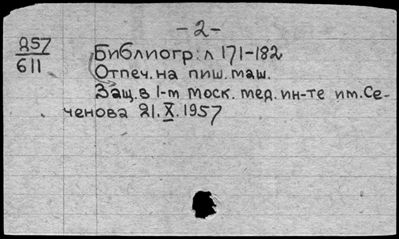 -2-
857
611
Библиогр: л 171-182
Отпеч. на пиш. маш.
Защ. в 1-м Моск. мед. ин-те им. Се-
ченова 21. X. 1957